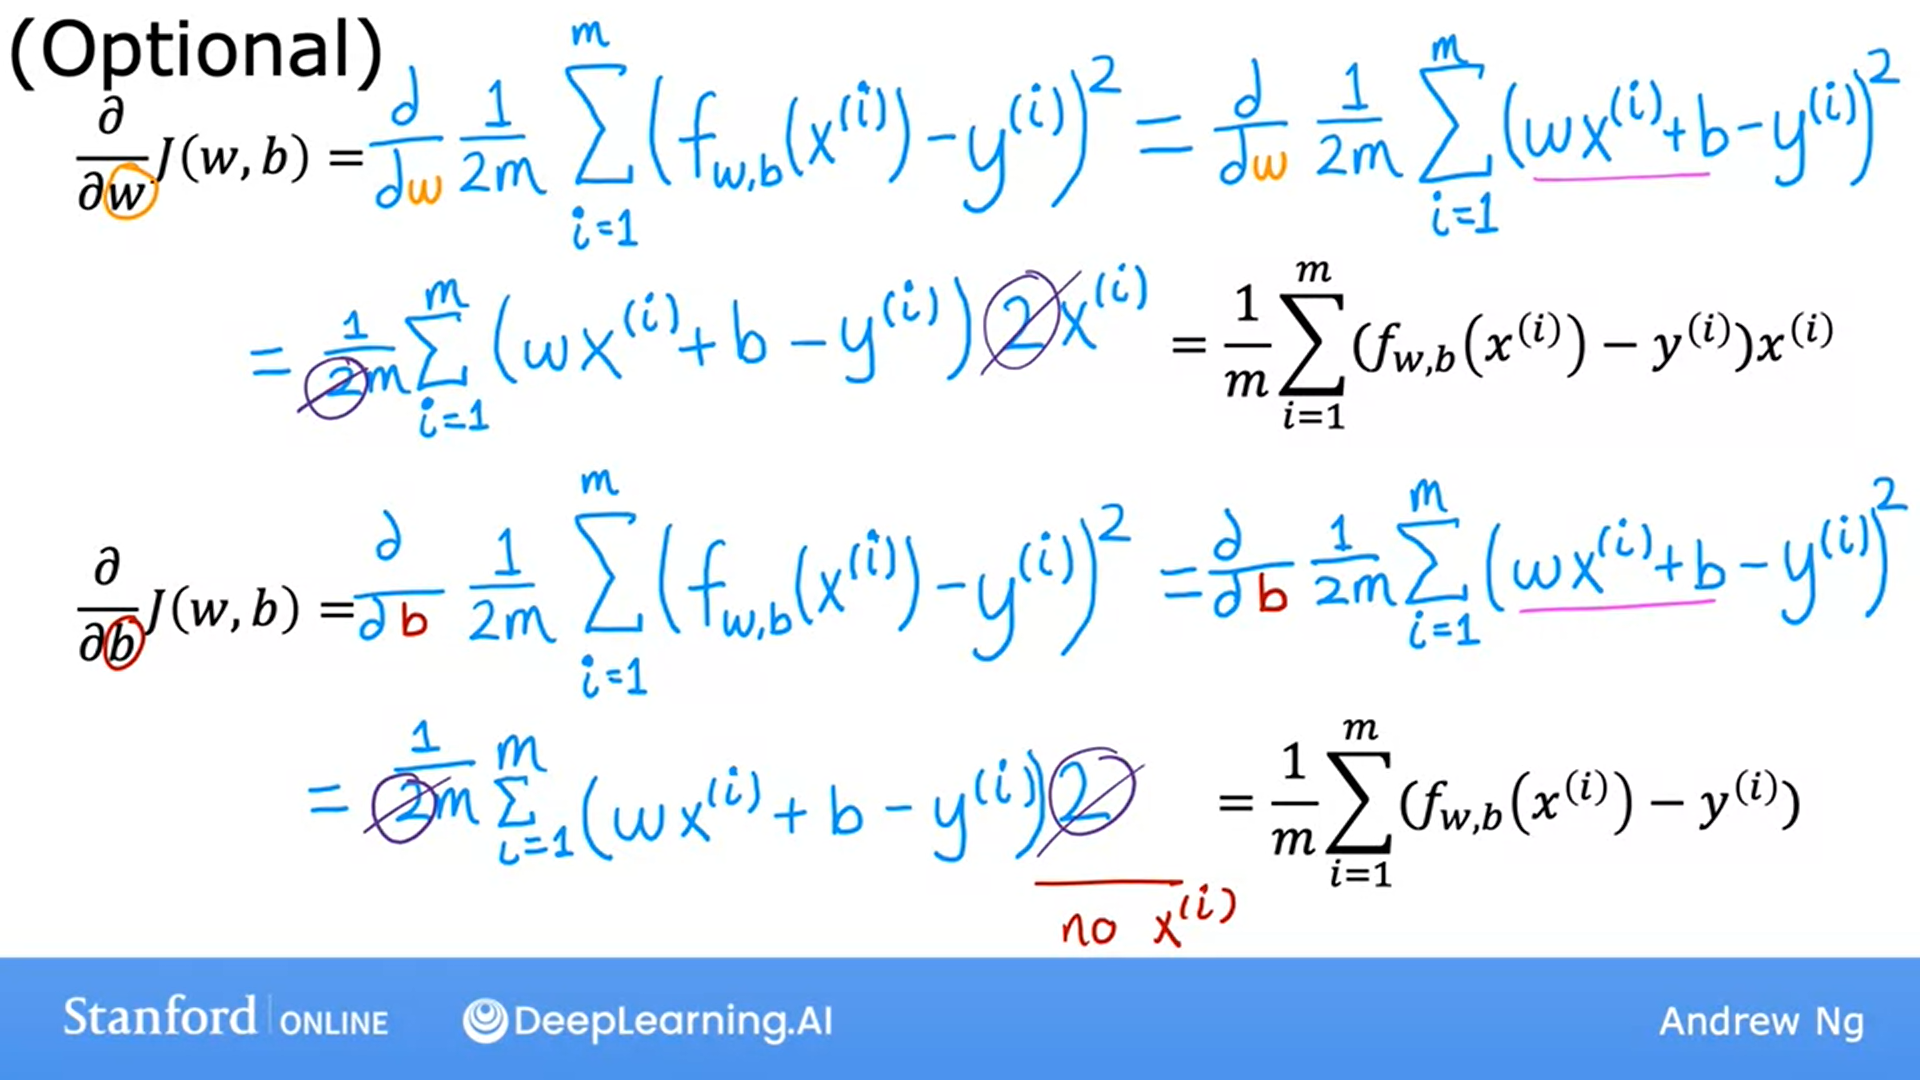 (Optional)
∂/∂w J(w, b) = ∂/∂w 1/2m ∑_{i=1}^{m} (f_{w,b}(x^{(i)}) − y^{(i)})² = ∂/∂w 1/2m ∑_{i=1}^{m} (wx^{(i)} + b − y^{(i)})²
= 1/2m ∑_{i=1}^{m} (wx^{(i)} + b − y^{(i)}) 2x^{(i)} = 1/m ∑_{i=1}^{m} (f_{w,b}(x^{(i)}) − y^{(i)})x^{(i)}
∂/∂b J(w, b) = ∂/∂b 1/2m ∑_{i=1}^{m} (f_{w,b}(x^{(i)}) − y^{(i)})² = ∂/∂b 1/2m ∑_{i=1}^{m} (wx^{(i)} + b − y^{(i)})²
= 1/2m ∑_{i=1}^{m} (wx^{(i)} + b − y^{(i)}) 2 = 1/m ∑_{i=1}^{m} (f_{w,b}(x^{(i)}) − y^{(i)})
no x^{(i)}
Stanford | ONLINE DeepLearning.AI Andrew Ng